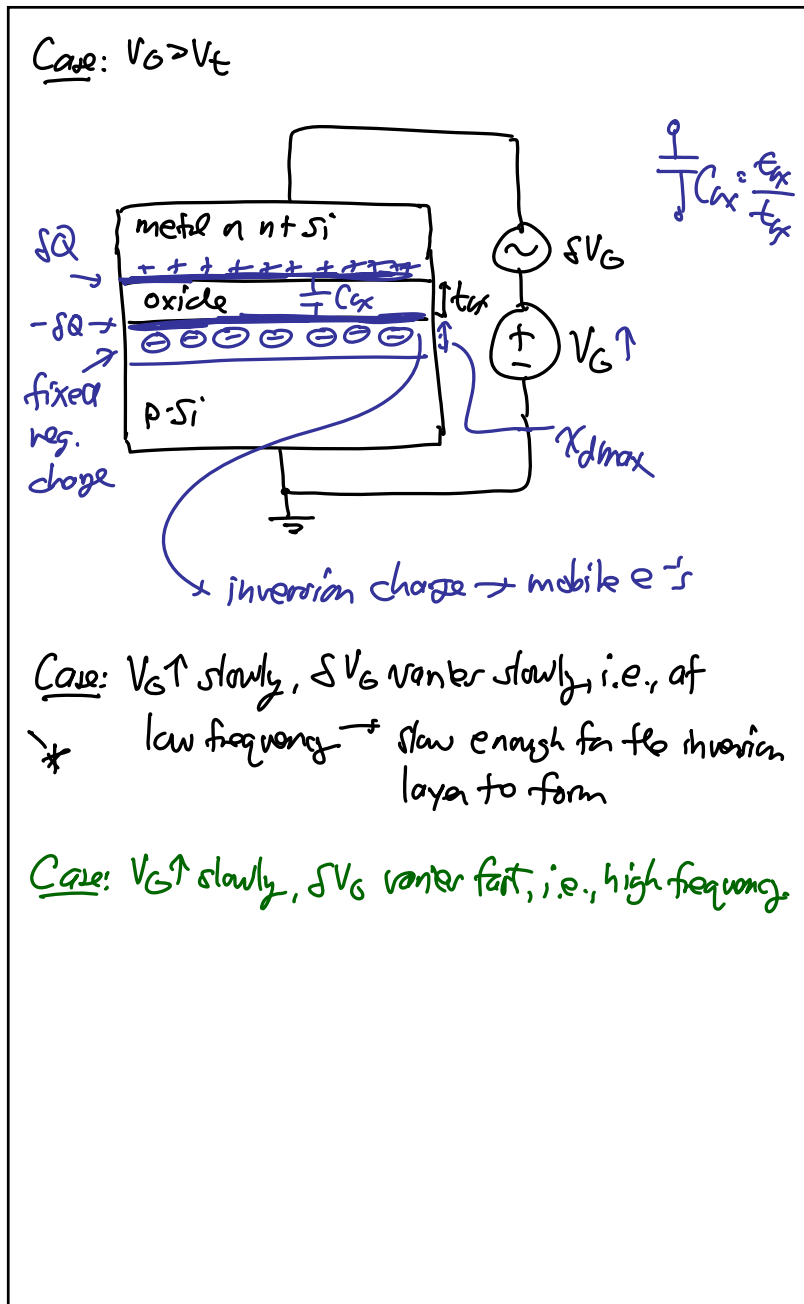 Case: VG > Vt
Cox = εox / tox
metal or n+ Si
+ + + + + + + + +
δQ
δVG
oxide
Cox
tox
-δQ →
+
-
VG ↑
fixed
neg.
charge
p-Si
xdmax
inversion charge → mobile e-'s
Case: VG ↑ slowly, δVG varies slowly, i.e., at
* low frequency → slow enough for the inversion
layer to form
Case: VG ↑ slowly, δVG varies fast, i.e., high frequency.